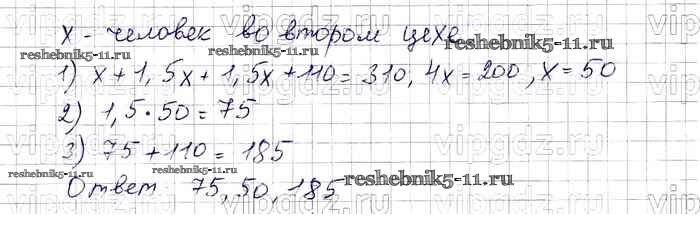 x - человек во втором цехе
reshebnik5-11.ru reshebnik5-11.ru
1) x + 1,5x + 1,5x + 110 = 310, 4x = 200, x = 50
2) 1,5 · 50 = 75
vipgdz.ru vipgdz.ru
3) 75 + 110 = 185
reshebnik5-11.ru
Ответ 75, 50, 185
reshebnik5-11.ru reshebnik5-11.ru
vipgdz.ru vipgdz.ru